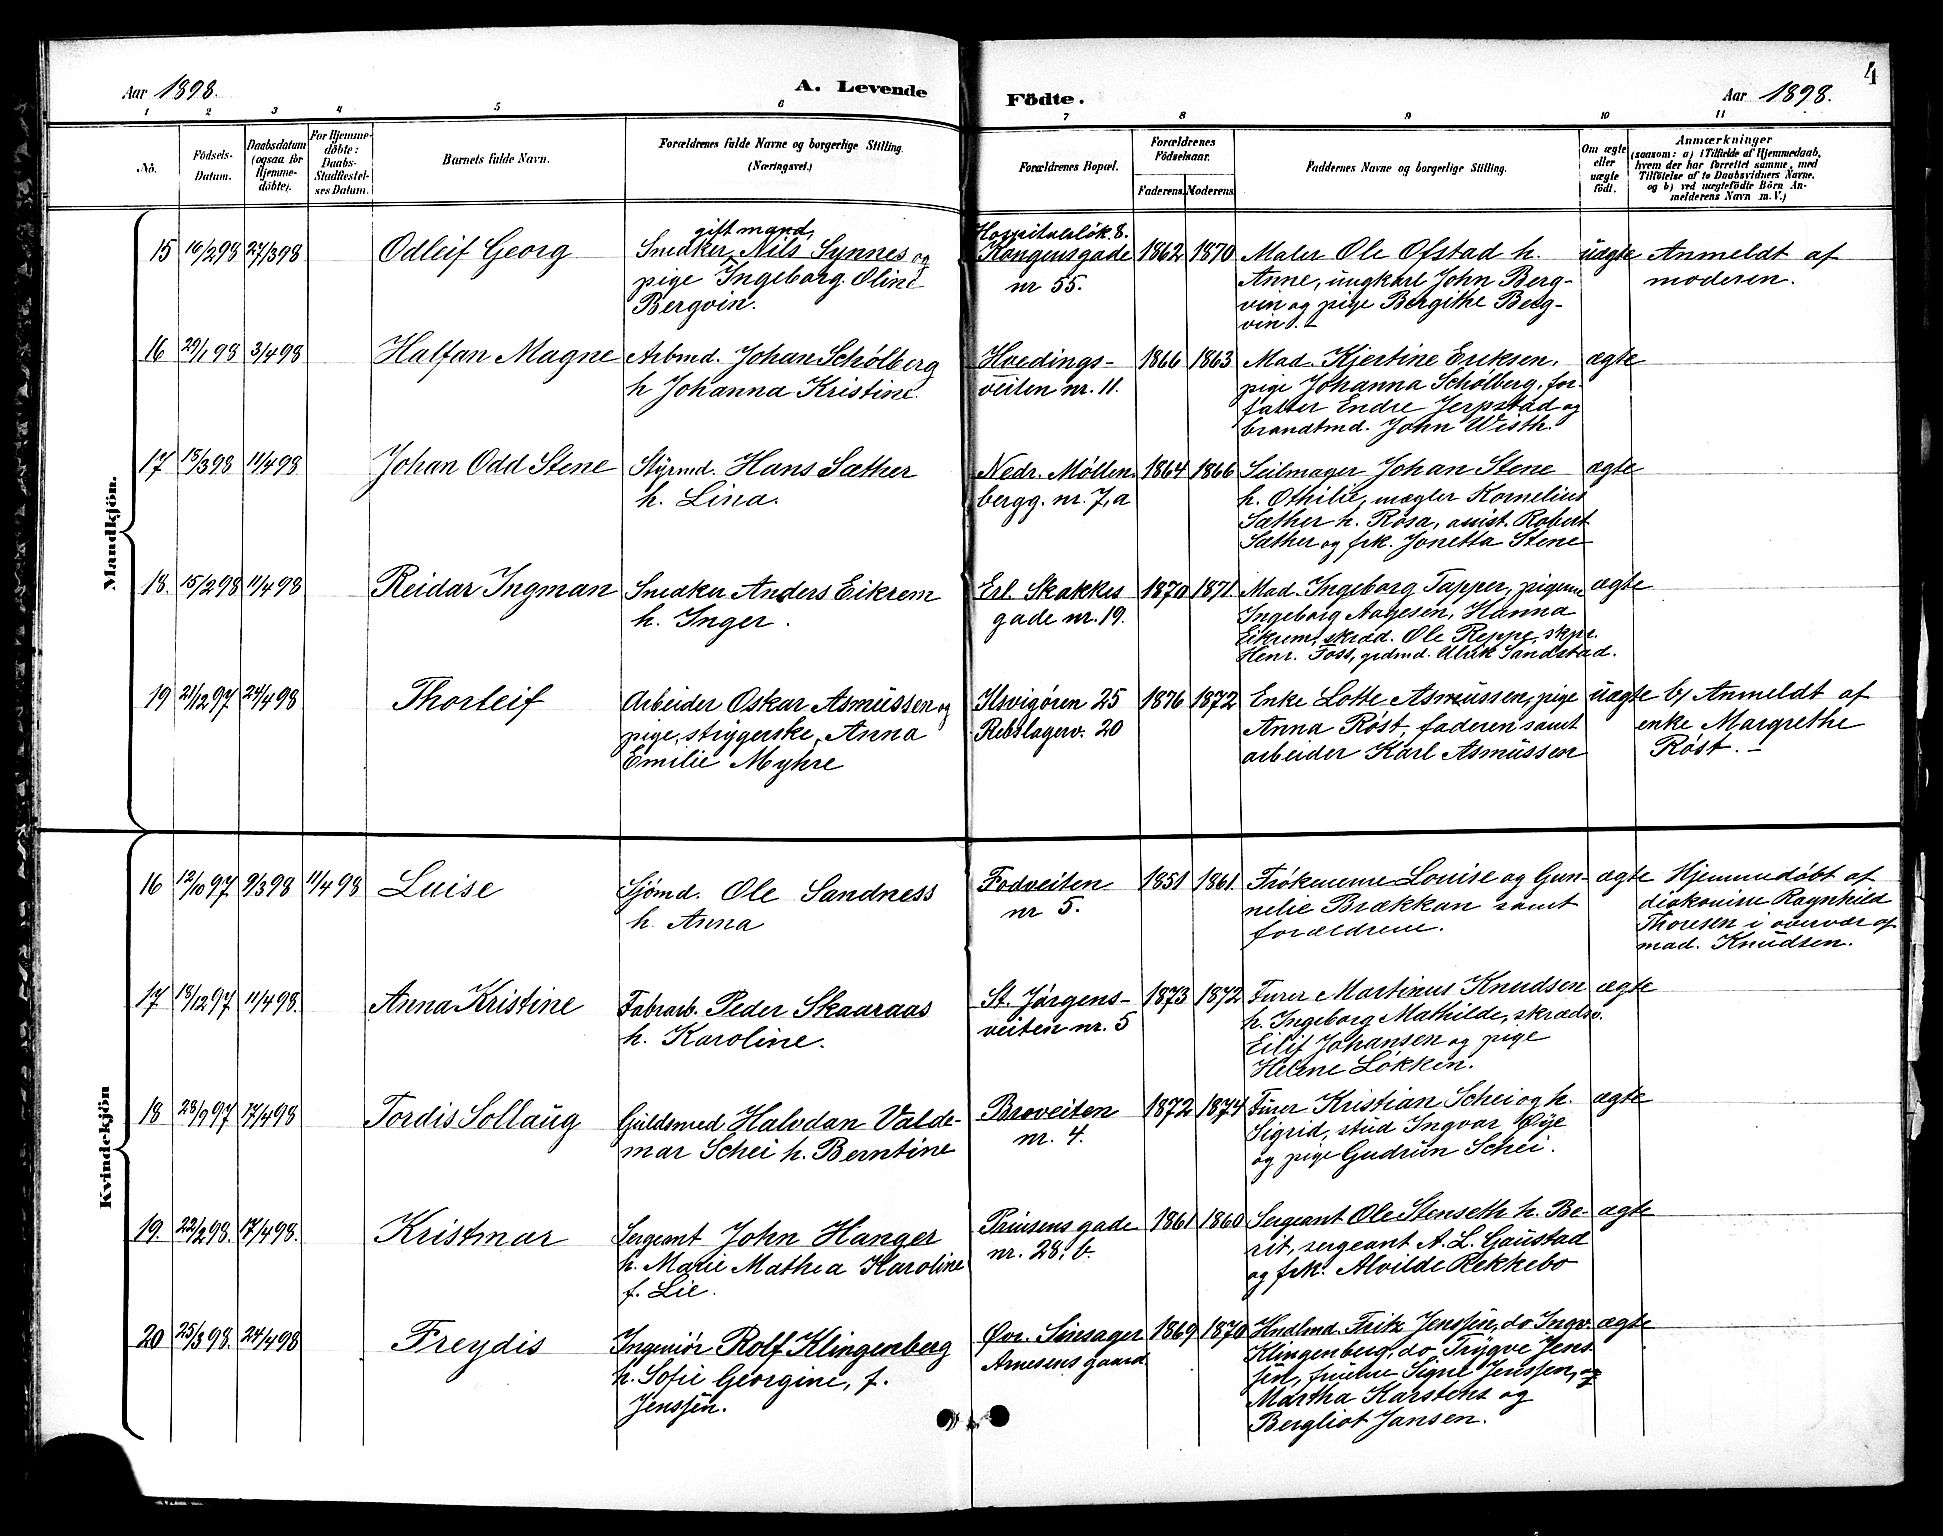 Aar 1898.
A. Levende
Födte.
Aar 1898.
4
1 2 3 4 5 6 7 8 9 10 11
No.
Födsels-
Datum.
Daabsdatum
(ogsaa for
Hjemme-
döbte).
For Hjemme-
döbte:
Daabs-
Stadfæstel-
ses Datum.
Barnets fulde Navn.
Forældrenes fulde Navne og borgerlige Stilling.
(Næringsvei.)
Forældrenes Bopæl.
Forældrenes
Födselsaar.
Faderens. Moderens.
Faddernes Navne og borgerlige Stilling.
Om ægte
eller
uægte
födt.
Anmærkninger
(saasom: a) i Tilfælde af Hjemmedaab,
hvem der har forrettet samme, med
Tilföielse af to Daabsvidners Navne,
og b) ved uægtefödte Börn An-
melderens Navn m. V.)
Mandkjön.
15 16/2 98 27/3 98
Odleif Georg
gift mand,
Snedker Nils Synnes og
pige Ingeborg Oline
Bergvin.
Hospitalsløk. 8.
Kongensgade
nr 55.
1862 1870
Maler Ole Ofstad h.
Anne, ungkarl John Berg-
vin og pige Bergithe Berg-
vin. –
uægte
Anmeldt af
moderen.
16 29/1 98 3/4 98
Halfan Magne
Arbmd. Johan Schølberg
h Johanna Kristine.
Hvedings-
veiten nr. 11.
1866 1863
Mad. Kjerstine Eriksen,
pige Johanna Schølberg, for-
fatter Endre Jerpstad og
brandtmd. John Wisth.
ægte
17 18/3 98 11/4 98
Johan Odd Stene
Styrmd. Hans Sæther
h. Lina.
Nedr. Møllen
bergg. nr. 7, a
1864 1866
Seilmager Johan Stene
h. Othilie, mægler Kornelius
Sæther h. Rosa, assist. Robert
Sæther og frk. Jonetta Stene
ægte
18. 15/2 98 11/4 98
Reidar Ingman
Snedker Anders Eikrem
h. Inger.
Erl. Skakkes
gade nr. 19.
1870 1871.
Mad. Ingeborg Tapper, pigerne
Ingeborg Aagesen, Hanna
Eikrem, skræd. Ole Reppe, skpr.
Henr. Foss, grdmd. Ulrik Sandstad.
ægte
19 21/12 97 24/4 98
Thorleif
Arbeider Oskar Asmussen og
pige, strygerske, Anna
Emilie Myhre
Ilsvigøren 25
Rebslagerv. 20
1876 1872
Enke Lotte Asmussen, pige
Anna Røst, faderen samt
arbeider Karl Asmussen
uægte
b/ Anmeldt af
enke Margrethe
Røst. –
Kvindekjön
16 12/10 97 9/3 98 11/4 98
Luise
Sjömd. Ole Sandness
h. Anna
Fodveiten
nr 5.
1851 1861.
Frökenerne Louise og Gun-
nelie Brækkan samt
forældrene.
ægte
Hjemmedøbt af
diakonisse Ragnhild
Thoresen i overvær af
mad. Knudsen.
17 18/12 97 11/4 98.
Anna Kristine
Fabrarb. Peder Skaaraas
h. Karoline.
St. Jørgens-
veiten nr. 5
1873 1872
Furer Martinus Knudsen
h. Ingeborg Mathilde, skrædsv.
Eilif Johansen og pige
Helene Løkken.
ægte
18 28/9 97 17/4 98
Tordis Sollaug
Guldsmed Halvdan Valde-
mar Schei h. Berntine
Broveiten
nr. 4.
1872 1874
Furer Kristian Schei og h.
Sigrid, stud Ingvar Øye
og pige Gudrun Schei.
ægte
19. 22/2 98. 17/4 98.
Kristmar
Sergeant John Hanger
h. Marie Mathea Karoline
f. Lie.
Prinsens gade
nr. 28, b.
1861 1860
Sergeant Ole Stenseth h. Be-
rit, sergeant A. L. Gaustad
og frk. Alvilde Rekkebo
ægte
20 25/3 98. 24/4 98
Freydis
Ingeniør Rolf Klingenberg
h. Sofie Georgine, f.
Jenssen.
Øvr. Sinsager
Arnesens gaard
1869 1870
Hndlmd. Fritz Jenssen, do Ingv.
Klingenberg, do Trygve Jens
sen, fruerne Signe Jenssen, og
Martha Karstens og
Bergliot Jansen.
ægte